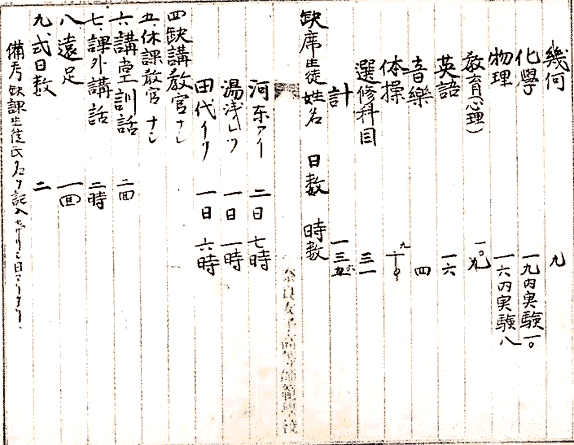 幾何 九
化學 一九内実験一〇
物理 一六内実験八
教育(心理)
英語 一六
音樂 四
体操
選修科目 三一
計
缺席生徒姓名 日数 時数
河东アイ 二日 七時
湯浅レツ 一日 一時
田代イク 一日 六時
四 缺講教官 ナシ
五 休課教官 ナシ
六 講堂訓話 二回
七 課外講話 二時
八 遠足 一回
九 式日数 二
備考 缺課生徒氏名ヲ記入
奈良女子高等師範學校